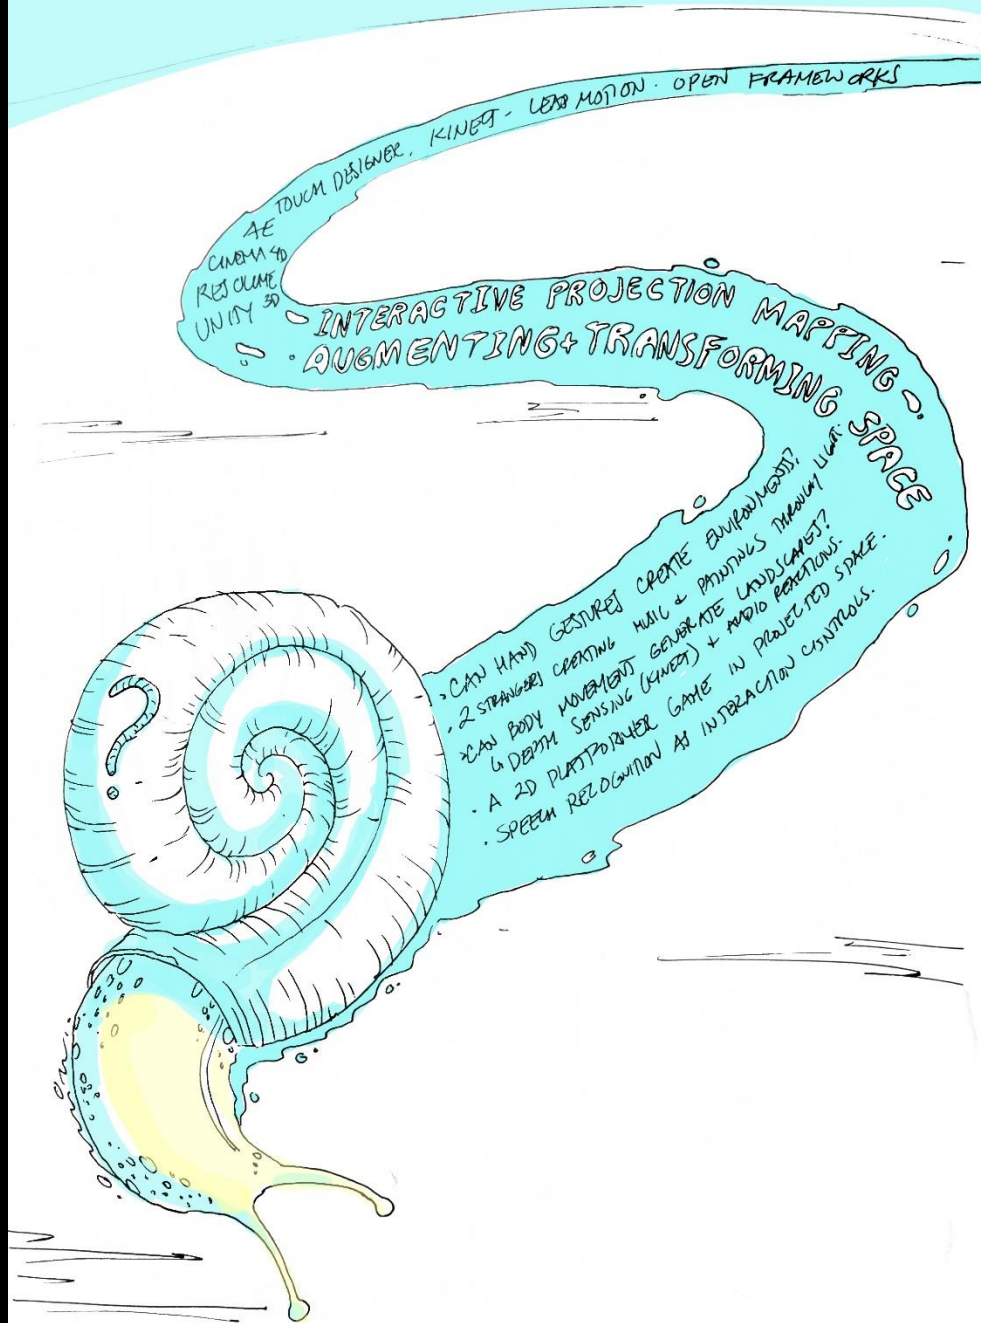 TOUCH DESIGNER. KINECT - LEAP MOTION. OPEN FRAMEWORKS
AE
CINEMA 4D
RESOLUME
UNITY 3D
INTERACTIVE PROJECTION MAPPING -
AUGMENTING + TRANSFORMING SPACE
• CAN HAND GESTURES CREATE ENVIRONMENTS?
• 2 STRANGERS CREATING MUSIC & PAINTINGS THROUGH LIGHT.
• CAN BODY MOVEMENT GENERATE LANDSCAPES?
↳ DEPTH SENSING (KINECT) + AUDIO REACTIONS.
• A 2D PLATFORMER GAME IN PROJECTED SPACE.
• SPEECH RECOGNITION AS INTERACTION CONTROLS.
?